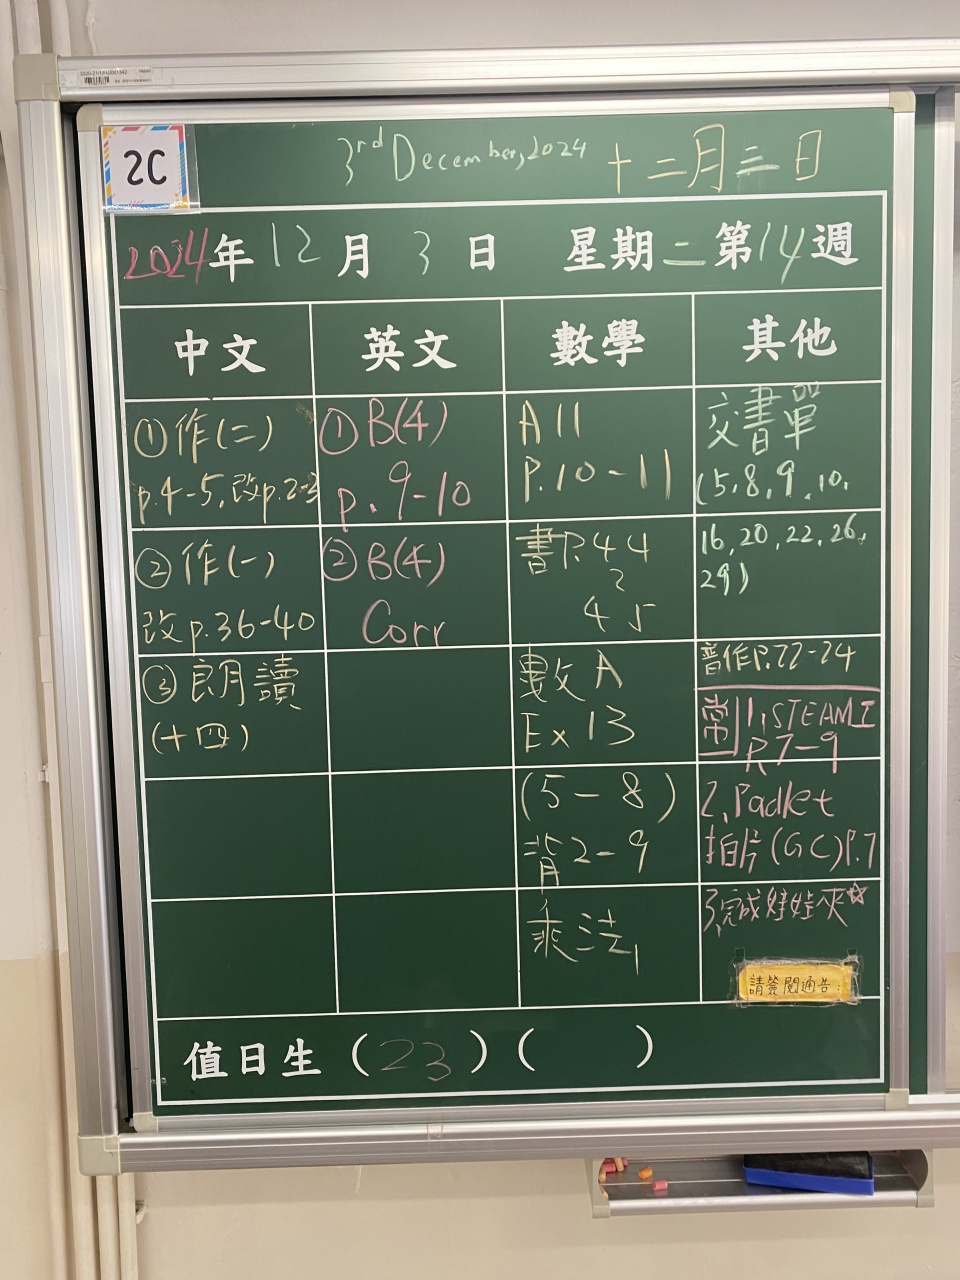 2C
3rd December, 2024 十二月三日
2024年12月3日 星期二 第14週
中文 英文 數學 其他
①作(二)
p.4-5,改p.2-3
②作(一)
改p.36-40
③朗讀
(十四)
①B(4)
p.9-10
②B(4)
Corr
A11
P.10-11
書P.44
~
45
數A
Ex13
(5-8)
背2-9
乘法
交書單
(5,8,9,10,
16,20,22,26,
29)
普作P.22-24
常 1.STEAM工
P.7-9
2.Padlet
拍片(GC)P.7
3.完成娃娃夾☆
請簽閱通告:
值日生(23)( )